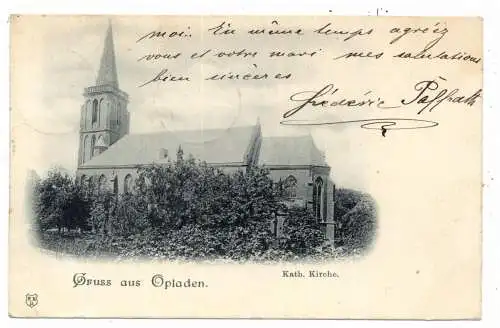 moi. En même temps agréez
vous et votre mari mes salutations
bien sincères
Frédéric Paffrath
Gruss aus Opladen.
Kath. Kirche.